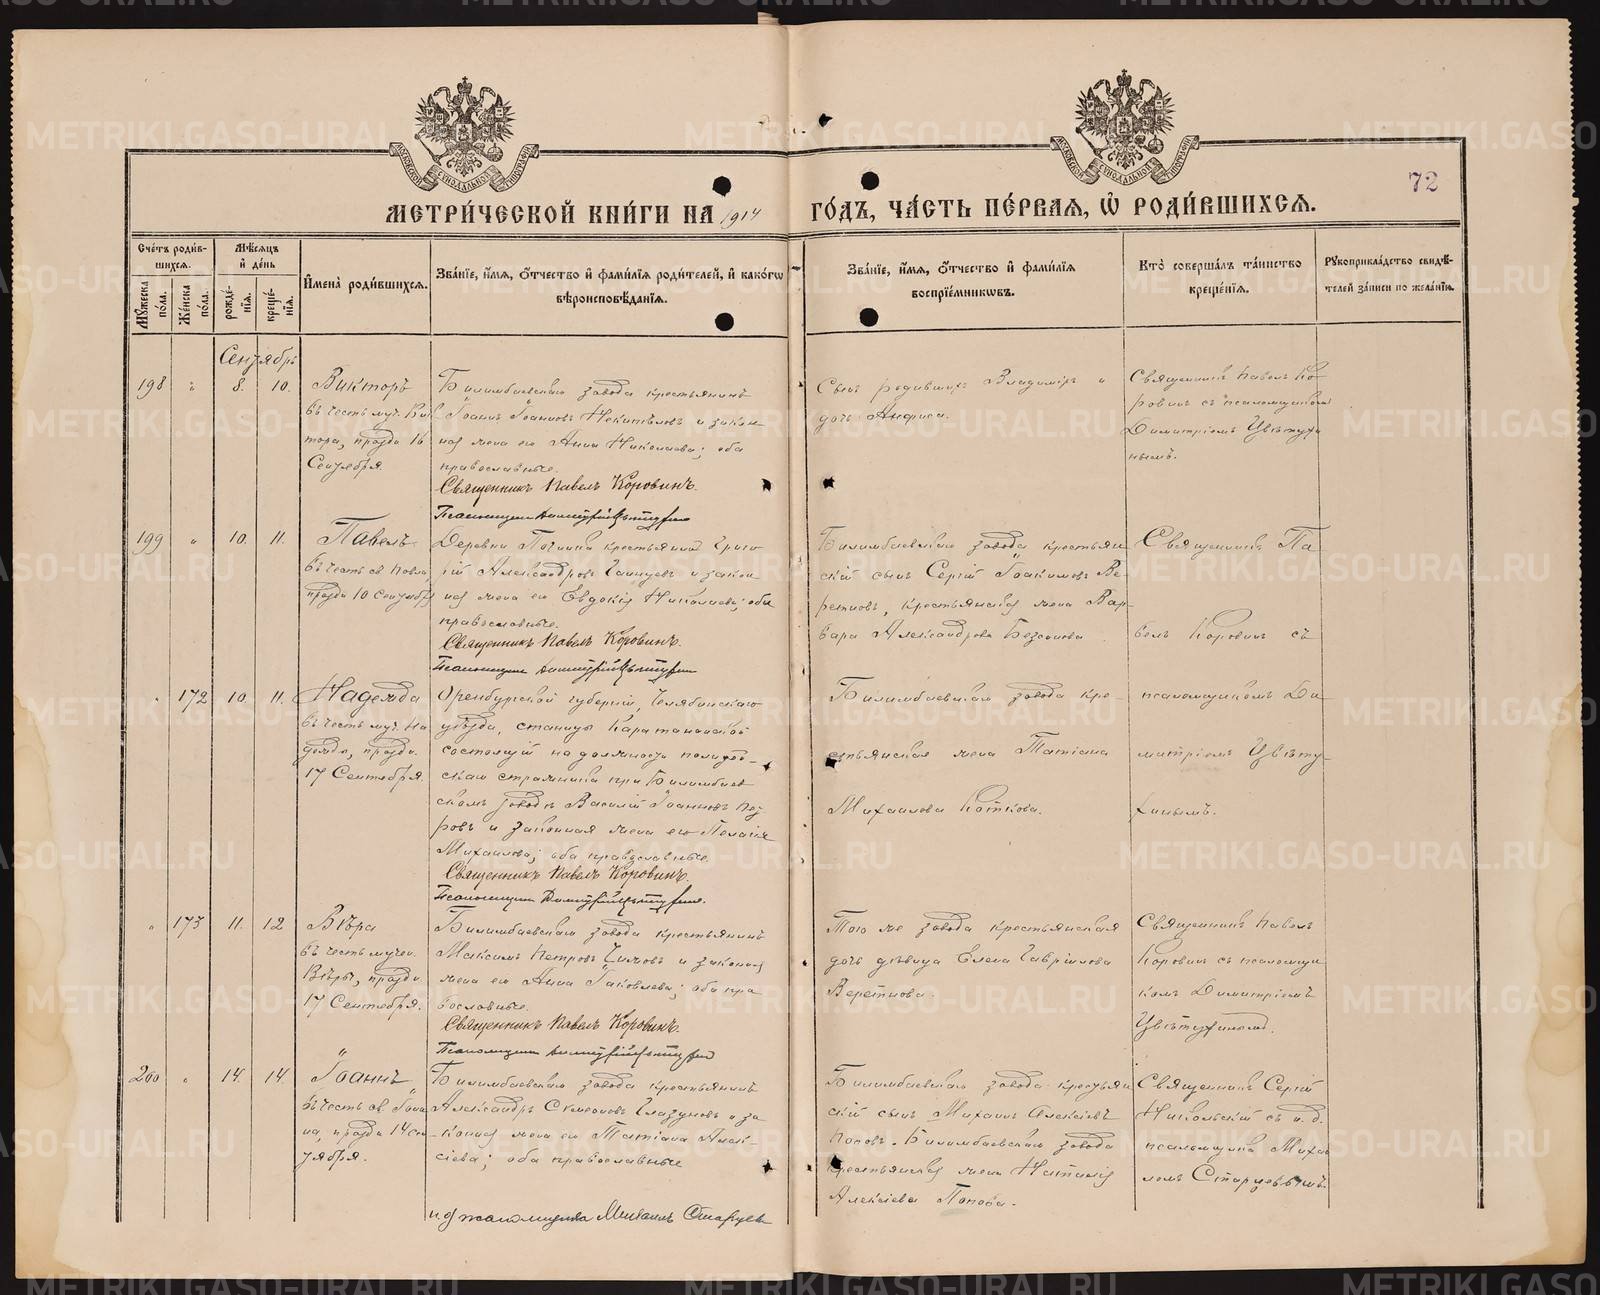 72
МЕТРИ́ЧЕСКОЙ КНИ́ГИ НА 1914 ГО́ДЪ, ЧА́СТЬ ПЕ́РВАЯ, Ѡ РОДИ́ВШИХСЯ.
Сче́тъ роди́в-
шихся.
Мꙋ́жеска по́ла.
Же́нска по́ла.
Мѣ́сяцъ
и де́нь
рожде́-
нїя.
креще́-
нїя.
Имена̀ роди́вшихся.
Зва́нїе, и́мя, о́тчество и фами́лїя роди́телей, и како́гѡ
вѣроисповѣ́данїя.
Зва́нїе, и́мя, о́тчество и фами́лїя
воспрїе́мникѡвъ.
Кто̀ соверша́лъ та́инство
креще́нїя.
Рꙋкоприкла́дство свидѣ́-
телей за́писи по жела́нїю.
Сентябрь
198 " 8. 10.
Викторъ
въ честь муч. Вик
тора, празд. 16
Сентября.
Билимбаевскаго завода крестьянинъ
Іоаннъ Іоанновъ и закон-
ная жена его Анна Николаева; оба
православные.
Священникъ Павелъ Коровинъ.
Псаломщикъ Димитрій Цвѣтухин
Сынъ Владиміръ и
дочь Анфиса.
Священникъ Павелъ Ко-
ровинъ съ псаломщикомъ
Димитріемъ Цвѣтухи
нымъ.
199 " 10. 11.
Павелъ
въ честь св. Павла
празд. 10 Сентября
Деревни крестьянинъ Григо
рій Александровъ и закон
ная жена его Евдокія Николаева; оба
православные.
Священникъ Павелъ Коровинъ.
Псаломщикъ Димитрій Цвѣтухин
Билимбаевскаго завода крестьян
скій сынъ Сергій Іоакимовъ Ве-
ретновъ, крестьянская жена Вар-
вара Александрова Безсонова.
Священникъ Па
велъ Коровинъ съ
" 172 10. 11.
Надежда
въ честь муч. На
дежды, празд.
17 Сентября.
Оренбургской губерніи, Челябинскаго
уѣзда, станицы
состоящій на должности полицей-
скаго стражника при Билимбаев
скомъ заводѣ Василій Іоанновъ Пет
ровъ и законная жена его Пелагія
Михаилова; оба православные.
Священникъ Павелъ Коровинъ.
Псаломщикъ Димитрій Цвѣтухин.
Билимбаевскаго завода кре-
стьянская жена Татіана
Михаилова Коткова.
псаломщикомъ Ди
митріемъ Цвѣту-
хинымъ.
" 173 11. 12
Вѣра
въ честь мучен.
Вѣры, празд.
17 Сентября.
Билимбаевскаго завода крестьянинъ
Максимъ Петровъ и законная
жена его Анна Іаковлева; оба пра
вославные.
Священникъ Павелъ Коровинъ.
Псаломщикъ Димитрій Цвѣтухин
Того же завода крестьянская
дочь дѣвица Елена Гавріилова
Веретнова.
Священникъ Павелъ
Коровинъ съ псаломщи
комъ Димитріемъ
Цвѣтухинымъ.
200 " 14. 14.
Іоаннъ
въ честь св. Іоан
на, празд. 14 Сен
тября.
Билимбаевскаго завода крестьянинъ
Александръ Симеоновъ Глазуновъ и за
конная жена его Татіана Алек
сіева; оба православные
и.д. псаломщика Михаилъ Старцевъ
Билимбаевскаго завода крестьян
скій сынъ Михаилъ Алексіевъ
Поповъ. Билимбаевскаго завода
крестьянская жена Наталія
Алексіева Попова.
Священникъ Сергій
Никольскій съ и.д.
псаломщика Михаи
ломъ Старцевымъ.
METRIKI.GASO-URAL.RU